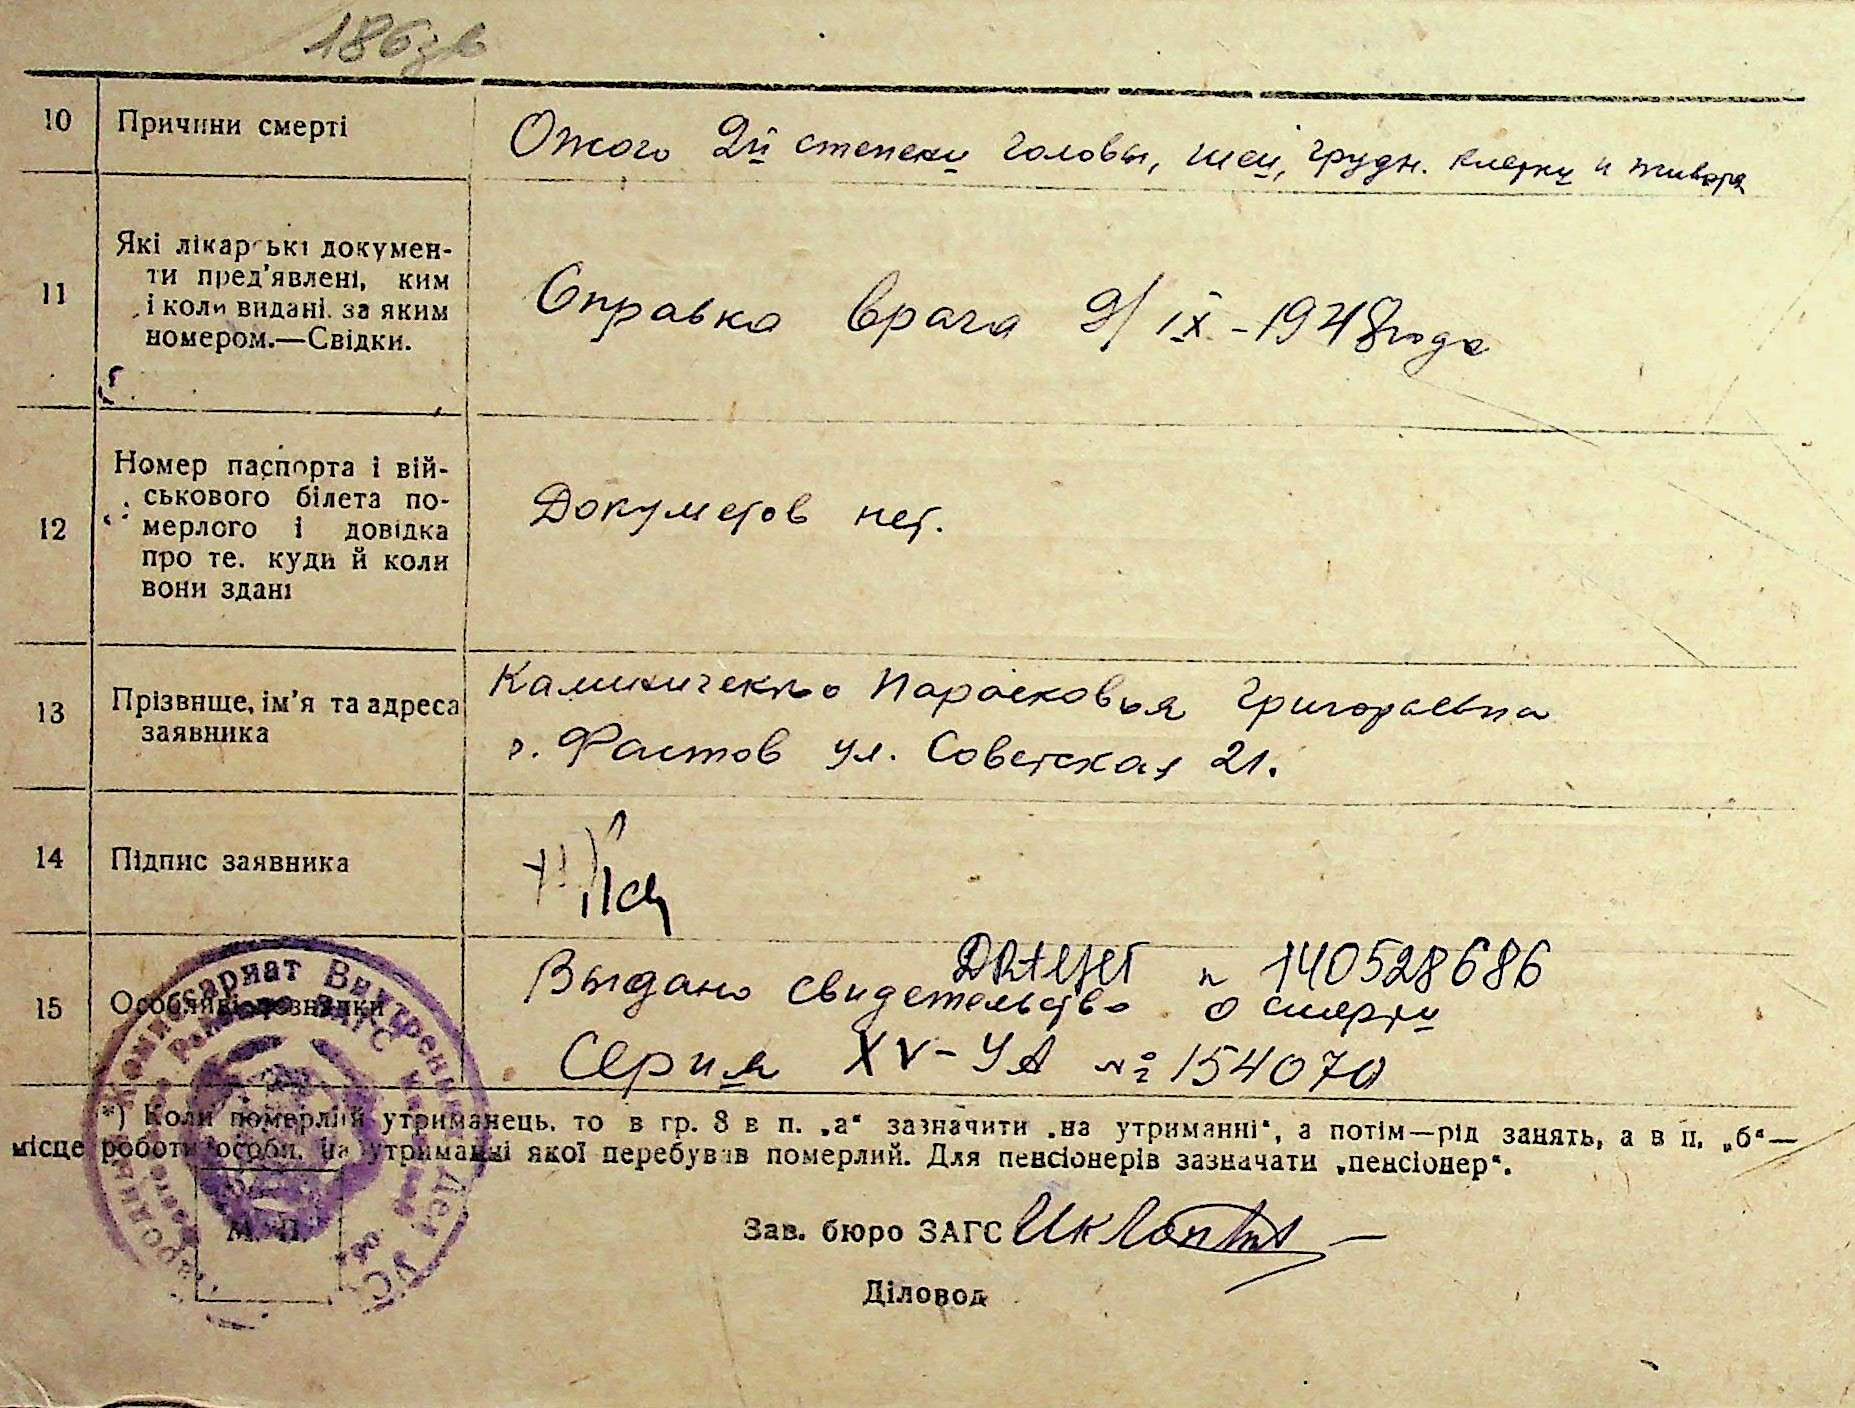 186зв
10 Причини смерті Ожого 2й степени головы, шеи, грудн. клетки и живота
11 Які лікарські докумен-
ти пред'явлені, ким
і коли видані, за яким
номером.—Свідки.
Справка врача 9/IX-1948 года
12 Номер паспорта і вій-
ськового білета по-
мерлого і довідка
про те, куди й коли
вони здані
Документов нет.
13 Прізвище, ім'я та адреса
заявника
Парасковья Григорьевна
г. Фастов ул. Советская 21.
14 Підпис заявника
15 Особливі познавки
140528686
Выдано свидетельство о смерти
Серия XV-УА № 154070
*) Коли померлий утриманець, то в гр. 8 в п. „а“ зазначити „на утриманні“, а потім—рід занять, а в п. „б“—
місце роботи особи, на утриманні якої перебував померлий. Для пенсіонерів зазначати „пенсіонер“.
М. П.
Зав. бюро ЗАГС
Діловод
Народный Комиссариат Внутренних Дел УССР